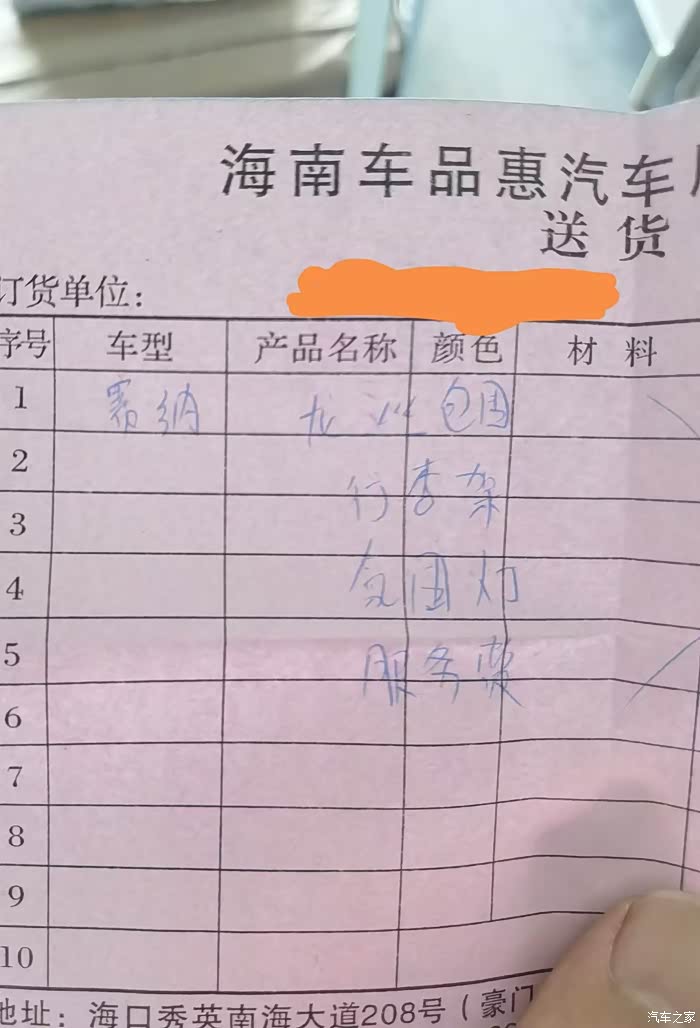 海南车品惠汽车
送货
订货单位：
序号 车型 产品名称 颜色 材料
1 赛纳 包围
2 行李架
3
4 氛围灯
5 服务费
6
7
8
9
10
地址：海口秀英南海大道208号（豪门
汽车之家